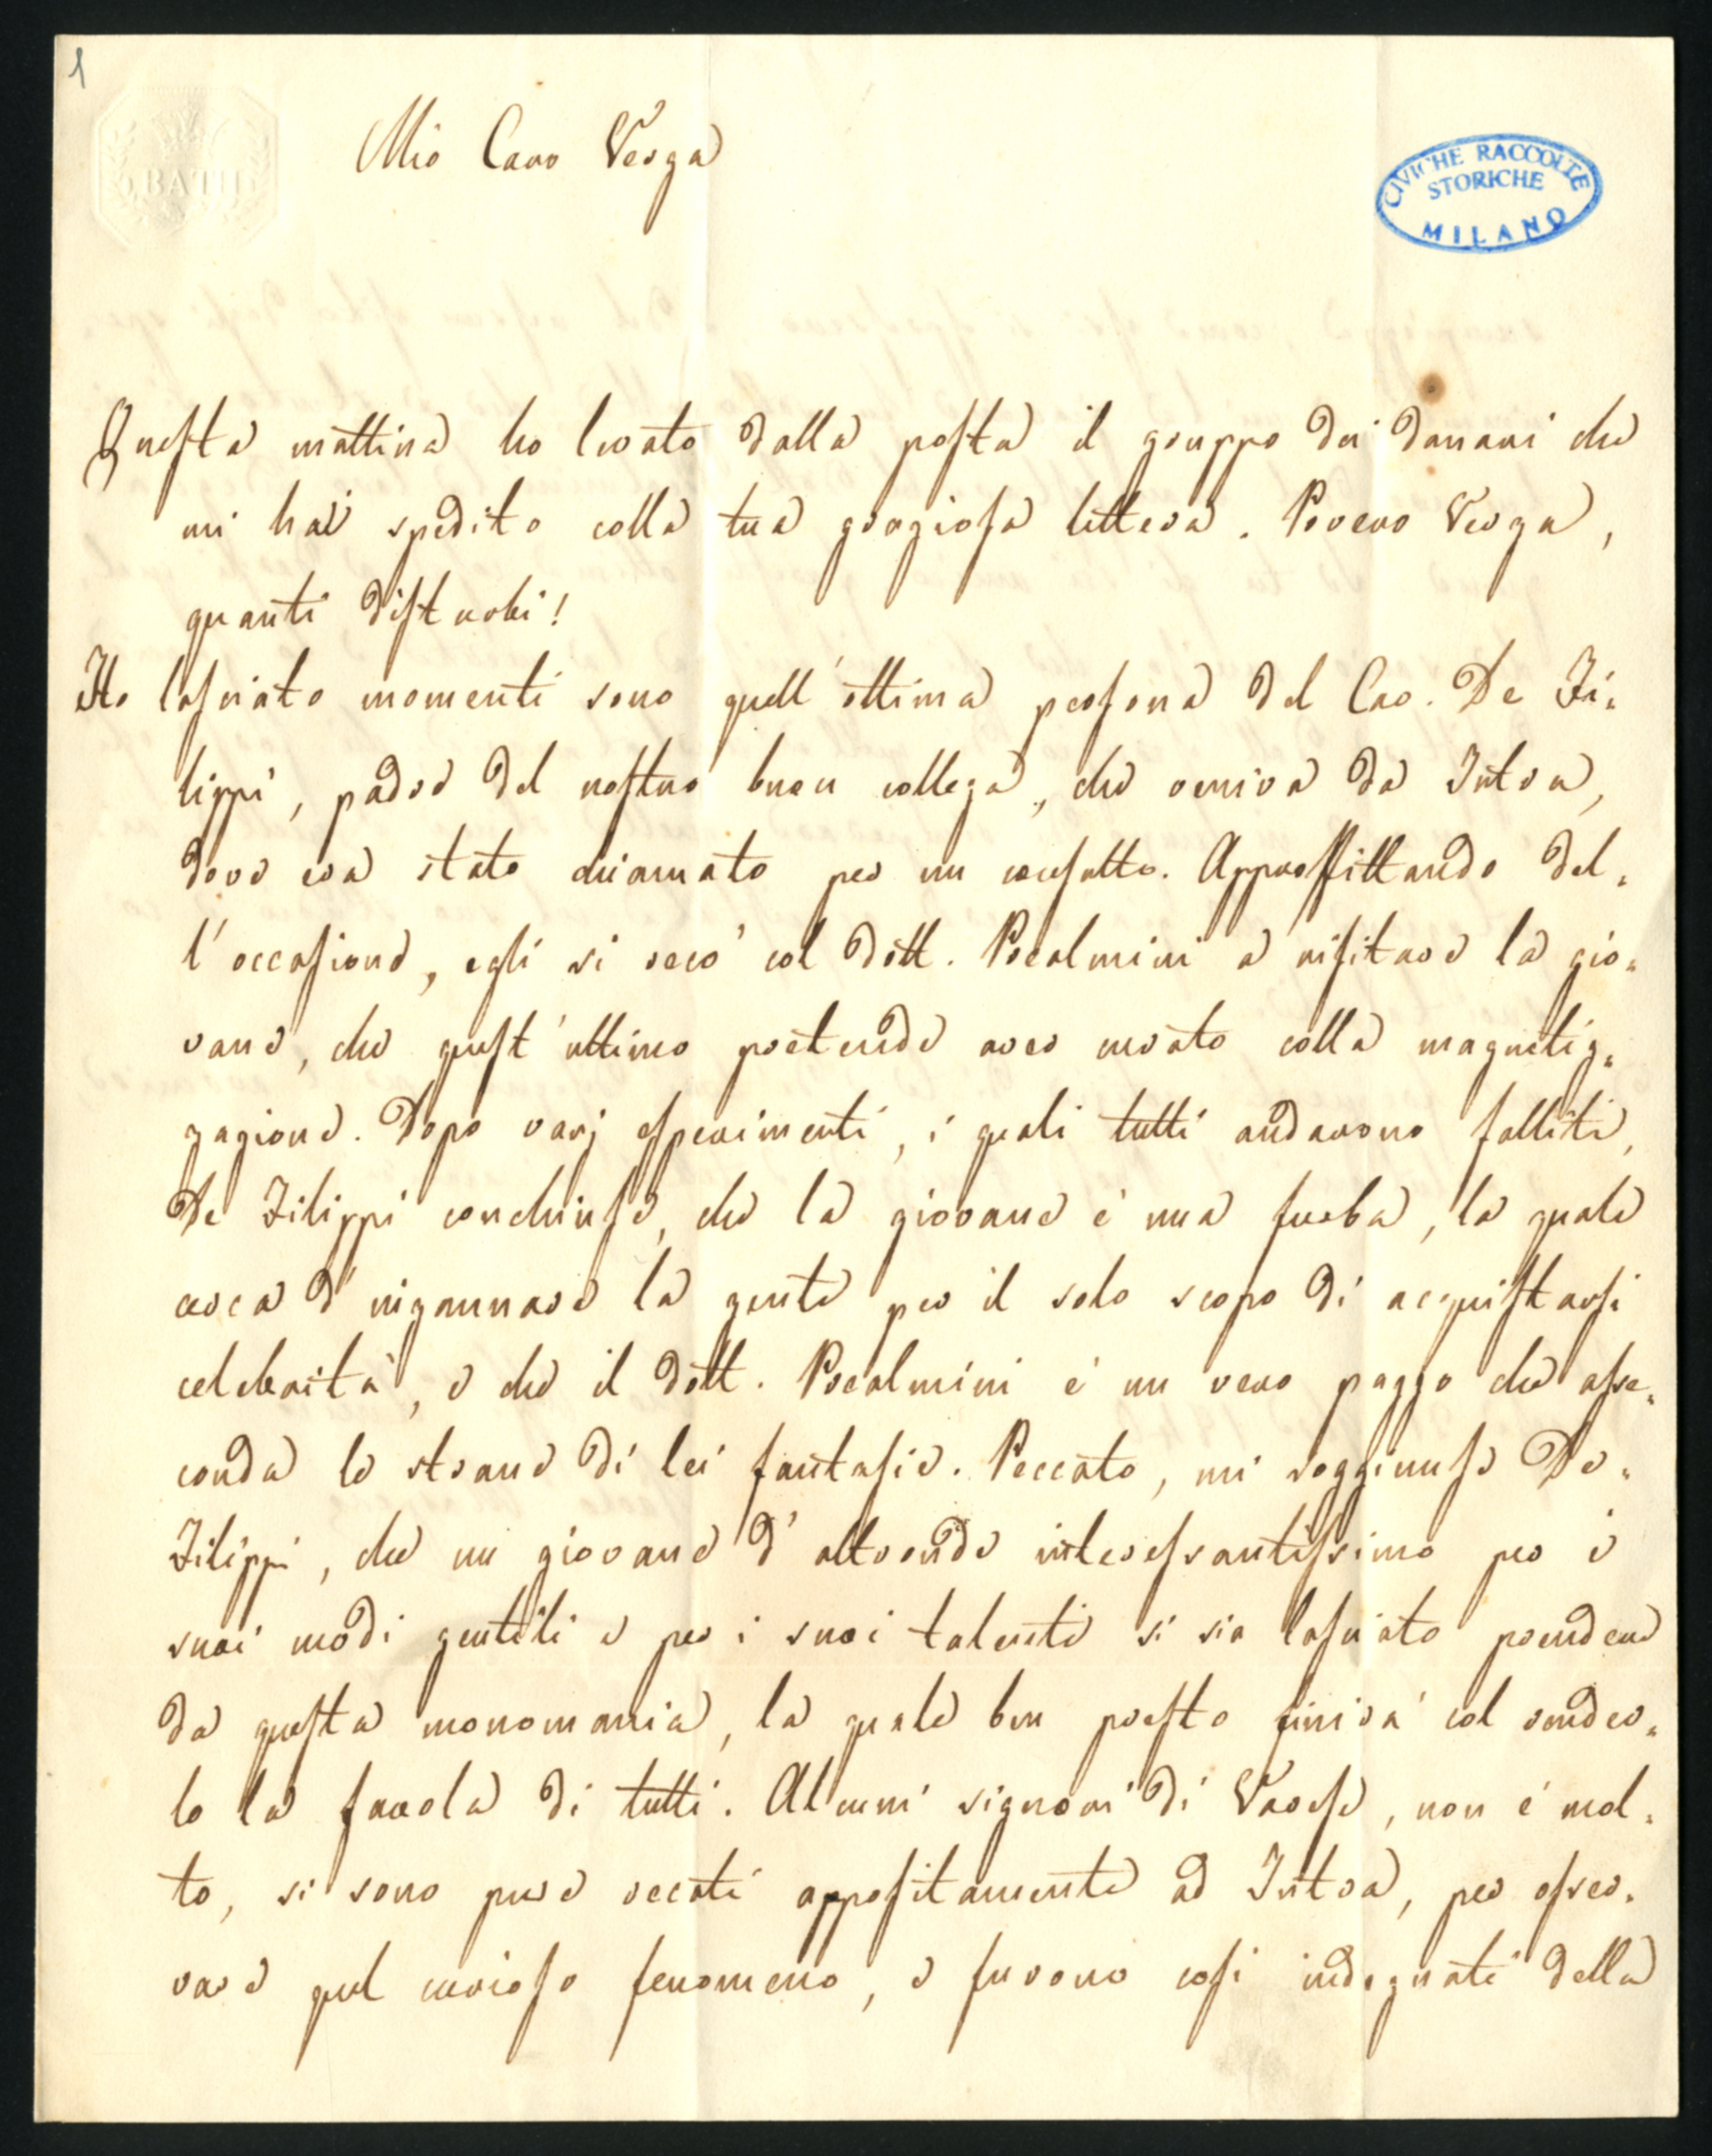 1
BATH
Mio Caro Verga
CIVICHE RACCOLTE
STORICHE
MILANO
Questa mattina ho levato dalla posta il gruppo dei danari che
mi hai spedito colla tua graziosa lettera. Povero Verga,
quanti disturbi!
Ho lasciato momenti sono quell'ottima persona del Cav. De Fi=
lippi, padre del nostro buon collega, che veniva da Intra,
dove era stato chiamato per un consulto. Approffittando del=
l'occasione, egli si recò col Dott. Pecalmini a visitare la gio=
vane, che quest'ultimo pretende aver curato colla magnetiz=
zazione. Dopo varj esperimenti, i quali tutti andarono falliti,
De Filippi conchiuse, che la giovane è una furba, la quale
cerca d'ingannare la gente per il solo scopo di acquistarsi
celebrità, e che il Dott. Pecalmini è un vero pazzo che asse=
conda le strane di lei fantasie. Peccato, mi soggiunse De=
Filippi, che un giovane d'altronde interessantissimo per i
suoi modi gentili e per i suoi talenti si sia lasciato prendere
da questa monomania, la quale ben presto finirà col render=
lo la favola di tutti. Alcuni signori di Varese, non è mol=
to, si sono pure recati appositamente ad Intra, per osser=
vare quel curioso fenomeno, e furono così indegnati della